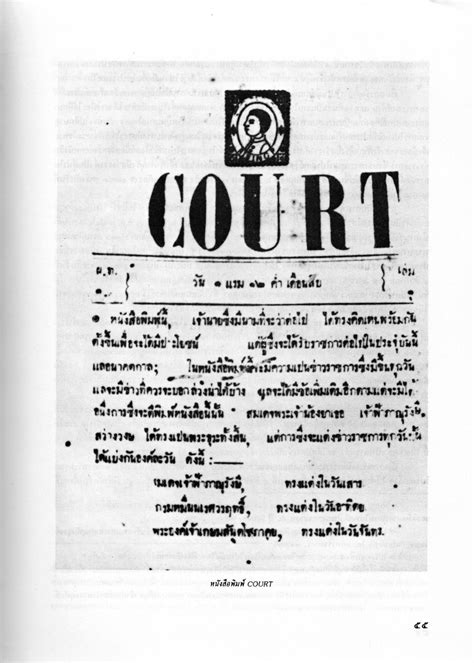 COURT
ผ.ท.
วัน ๑ แรม ๑๒ ค่ำ เดือนสิบ
เล่ม
๑
๏ หนังสือพิมพ์นี้, เจ้านายซึ่งมีนามที่จะว่าต่อไป ได้ทรงคิดเตนพร้อมกัน
ตั้งขึ้นเพื่อจะได้มีประโยชน์ แต่ผู้ซึ่งจะได้รับราชการต่อไปในประจุบันนี้
แลอนาคตกาล; ในหนังสือพิมพ์นี้จะมีความเปนข่าวราชการซึ่งมีขึ้นทุกวัน
แลจะมีข่าวที่ควรจะบอกล่วงน่าได้บ้าง
อนึ่งการซึ่งจะตีพิมพ์หนังสือนี้นั้น สมเดจพระเจ้าน้องยาเธอ เจ้าฟ้าภาณุรังษี
สว่างวงษ ได้ทรงเปนพระธุระทั้งสิ้น, แต่การซึ่งจะแต่งข่าวราชการทุกวันนั้น
ได้แบ่งกันองค์ละวัน ดังนี้ :—
สมเดจเจ้าฟ้าภาณุรังษี, ทรงแต่งในวันเสาร
กรมหมื่นนเรศวรฤทธิ์, ทรงแต่งในวันอาทิตย
พระองค์เจ้าเกษมสันต์โสภาคย, ทรงแต่งในวันจันทร.
หนังสือพิมพ์ COURT
๕๕